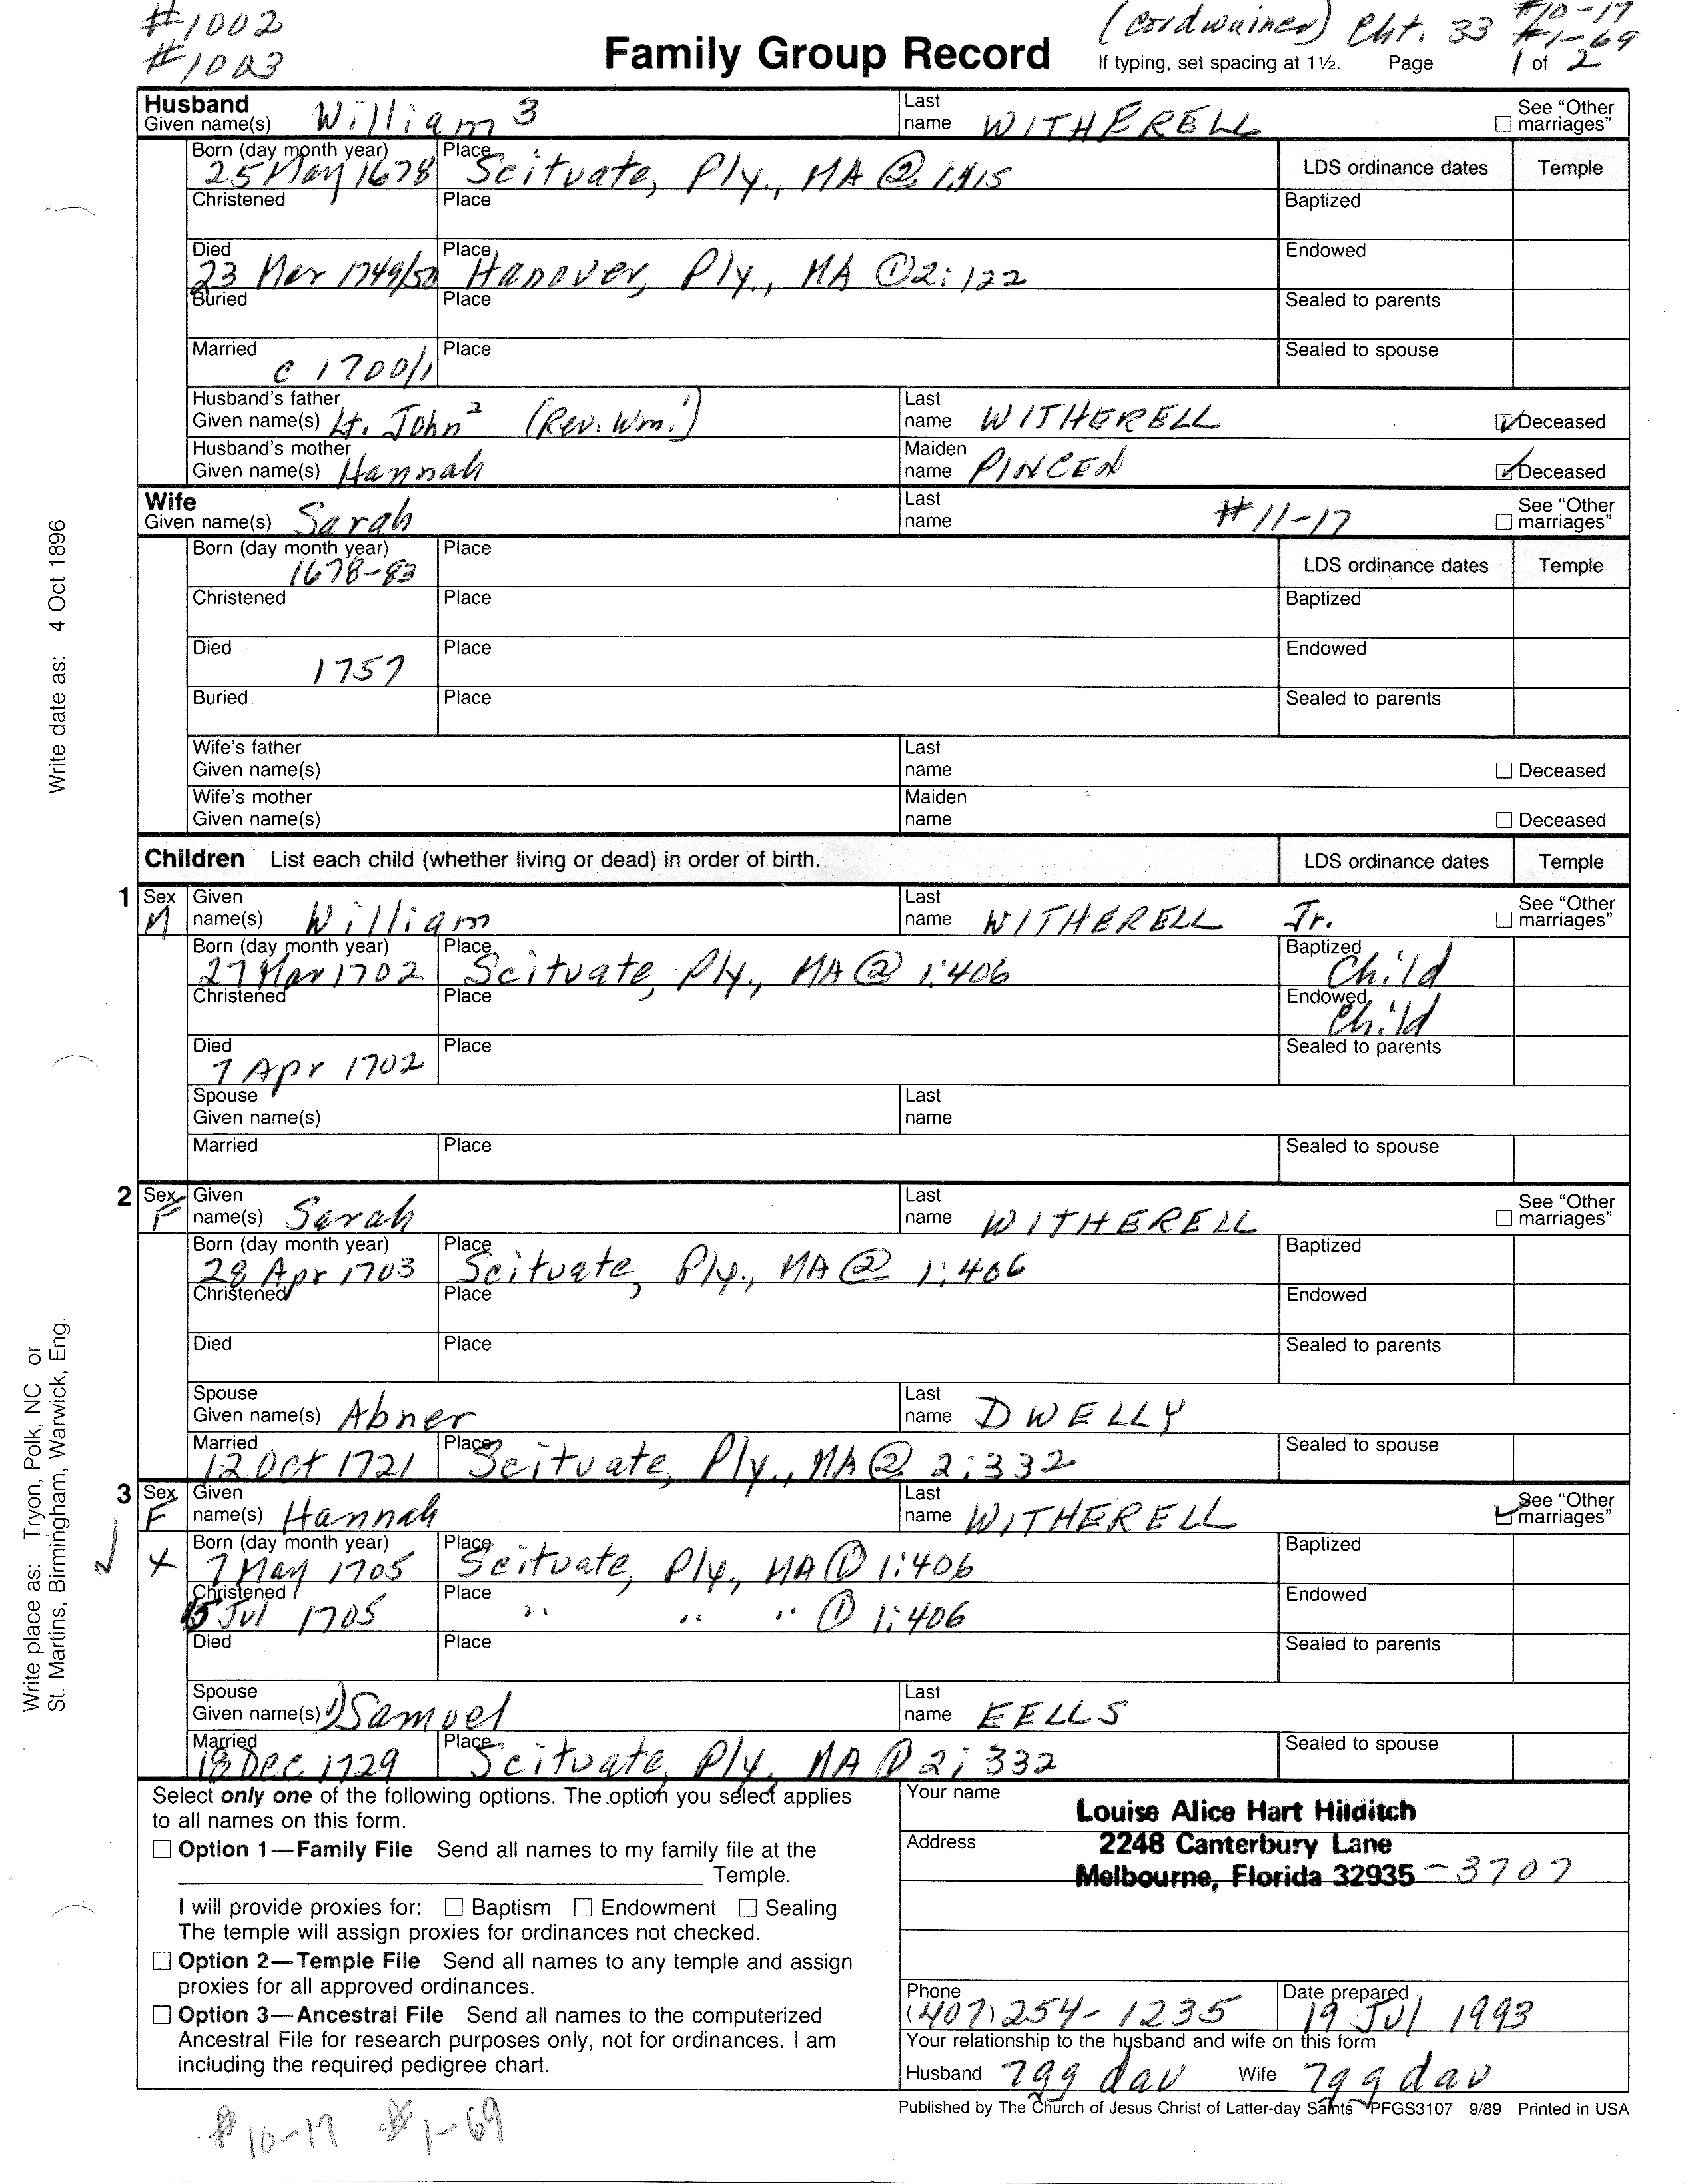 #1002
#1003
(cordwainer) Cht. 33 #10-17
#1-69
Family Group Record
If typing, set spacing at 1½. Page 1 of 2
Husband
Given name(s) William 3
Last name WITHERELL
See "Other marriages"
Born (day month year) 25 May 1678
Place Scituate, Ply., MA @ 1:415
LDS ordinance dates Temple
Christened Place Baptized
Died 23 Mar 1749/50
Place Hanover, Ply., MA ① 2:122
Endowed
Buried Place Sealed to parents
Married c 1700/1
Place Sealed to spouse
Husband's father
Given name(s) Lt. John² (Rev. Wm.¹)
Last name WITHERELL
Deceased
Husband's mother
Given name(s) Hannah
Maiden name PINCEN
Deceased
Wife
Given name(s) Sarah
Last name #11-17
See "Other marriages"
Born (day month year) 1678-83
Place
LDS ordinance dates Temple
Christened Place Baptized
Died 1757
Place Endowed
Buried Place Sealed to parents
Wife's father
Given name(s)
Last name
Deceased
Wife's mother
Given name(s)
Maiden name
Deceased
Children List each child (whether living or dead) in order of birth.
LDS ordinance dates Temple
1 Sex M
Given name(s) William
Last name WITHERELL Jr.
See "Other marriages"
Born (day month year) 27 Mar 1702
Place Scituate, Ply., MA @ 1:406
Baptized Child
Christened Place Endowed Child
Died 7 Apr 1702
Place Sealed to parents
Spouse
Given name(s)
Last name
Married Place Sealed to spouse
2 Sex F
Given name(s) Sarah
Last name WITHERELL
See "Other marriages"
Born (day month year) 28 Apr 1703
Place Scituate, Ply., MA @ 1:406
Baptized
Christened Place Endowed
Died Place Sealed to parents
Spouse
Given name(s) Abner
Last name DWELLY
Married 12 Oct 1721
Place Scituate, Ply., MA @ 2:332
Sealed to spouse
3 Sex F
Given name(s) Hannah
Last name WITHERELL
See "Other marriages"
X
Born (day month year) 7 May 1705
Place Scituate, Ply., MA ① 1:406
Baptized
Christened 15 Jul 1705
Place " " " ① 1:406
Endowed
Died Place Sealed to parents
Spouse
Given name(s) 1) Samuel
Last name EELLS
Married 18 Dec 1729
Place Scituate, Ply. MA ① 2:332
Sealed to spouse
Select only one of the following options. The option you select applies
to all names on this form.
Option 1—Family File Send all names to my family file at the
Temple.
I will provide proxies for: Baptism Endowment Sealing
The temple will assign proxies for ordinances not checked.
Option 2—Temple File Send all names to any temple and assign
proxies for all approved ordinances.
Option 3—Ancestral File Send all names to the computerized
Ancestral File for research purposes only, not for ordinances. I am
including the required pedigree chart.
Your name Louise Alice Hart Hilditch
Address 2248 Canterbury Lane
Melbourne, Florida 32935-3707
Phone (407) 254-1235
Date prepared 19 Jul 1993
Your relationship to the husband and wife on this form
Husband 7gg dau Wife 7gg dau
Published by The Church of Jesus Christ of Latter-day Saints PFGS3107 9/89 Printed in USA
#10-17 #1-69
Write date as: 4 Oct 1896
Write place as: Tryon, Polk, NC or
St. Martins, Birmingham, Warwick, Eng.
2